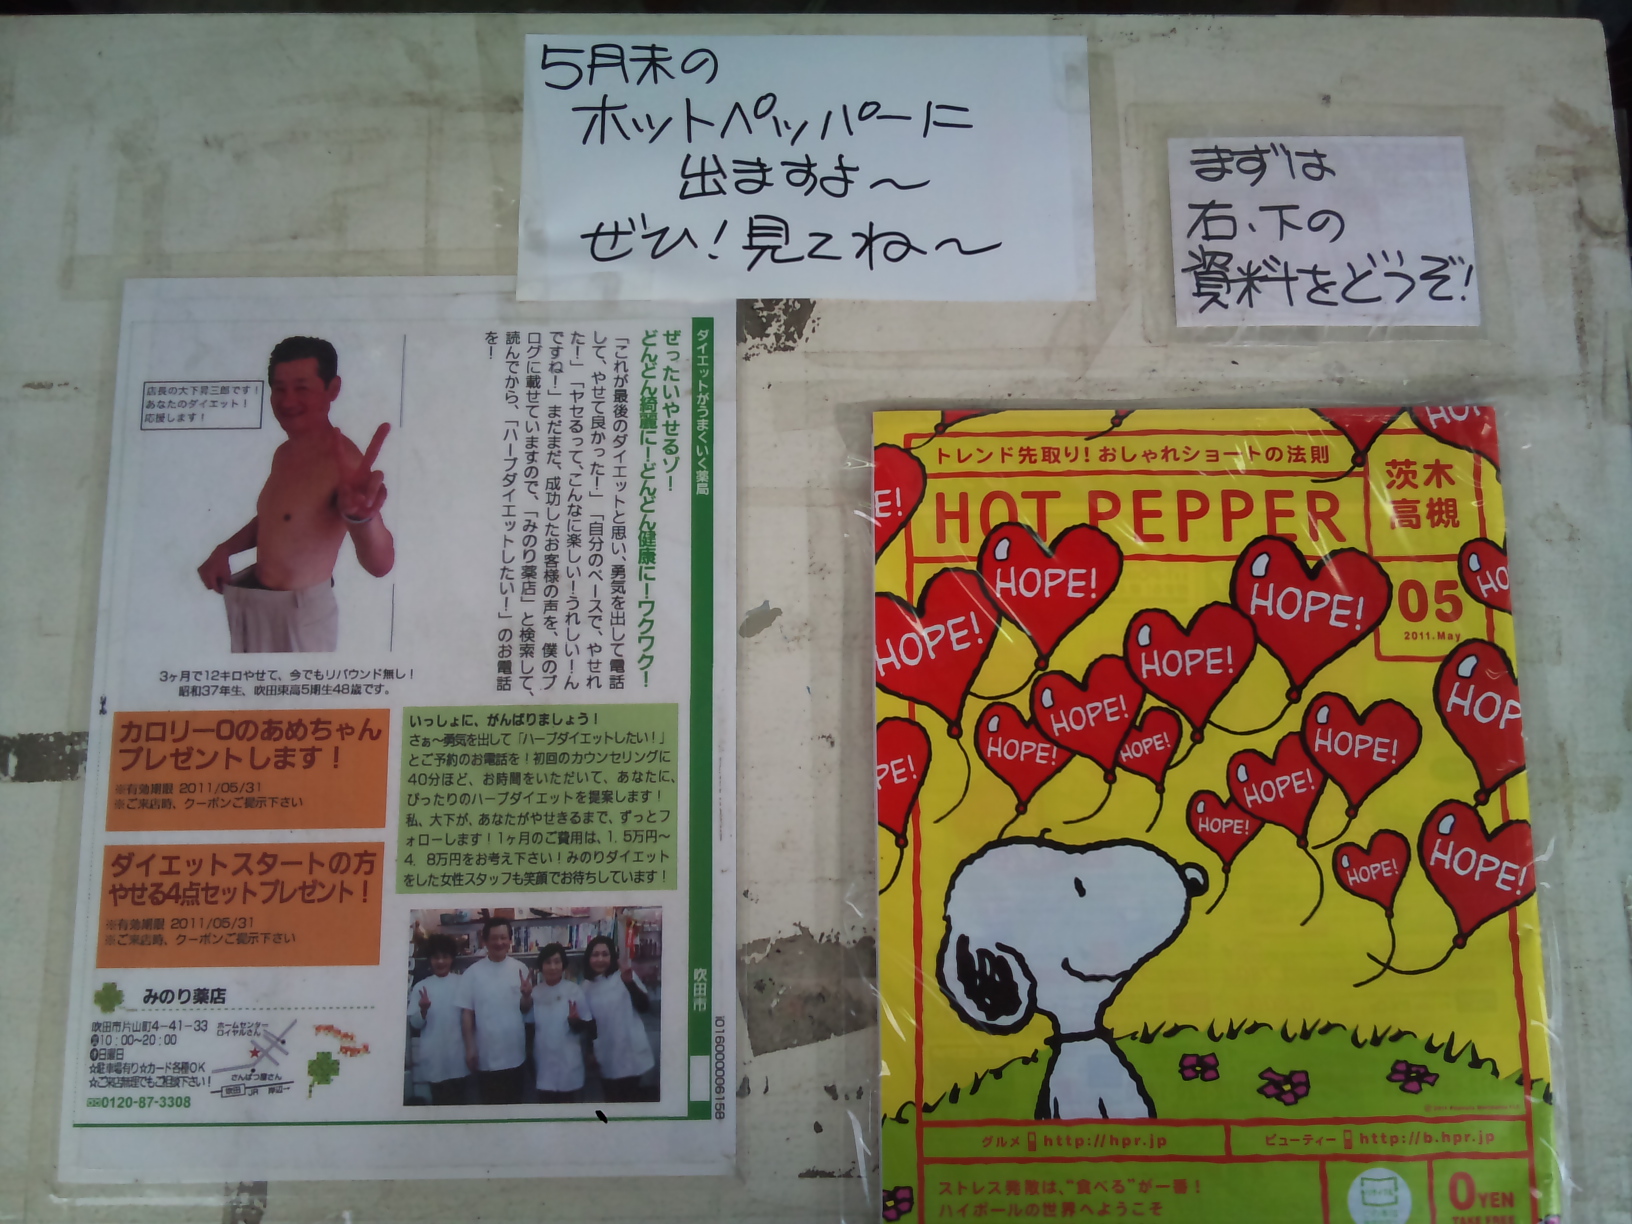 5月末の
ホットペッパーに
出ますよ〜
ぜひ!見てね〜
まずは
右、下の
資料をどうぞ!
ダイエットがうまくいく薬局
吹田市
ぜったいやせるゾ!
どんどん綺麗に!どんどん健康に!ワクワク!
「これが最後のダイエットと思い、勇気を出して電話
して、やせて良かった!」「自分のペースで、やせれ
た!」「ヤセるって、こんなに楽しい!うれしい!ん
ですね!」まだまだ、成功したお客様の声を、僕のブ
ログに載せていますので、「みのり薬店」と検索して、
読んでから、「ハーブダイエットしたい!」のお電話
を!
店長の大下昇三郎です!
あなたのダイエット!
応援します!
3ヶ月で12キロやせて、今でもリバウンド無し!
昭和37年生、吹田東高5期生48歳です。
カロリー0のあめちゃん
プレゼントします!
※有効期限 2011/05/31
※ご来店時、クーポンご提示下さい
ダイエットスタートの方
やせる4点セットプレゼント!
※有効期限 2011/05/31
※ご来店時、クーポンご提示下さい
いっしょに、がんばりましょう!
さぁ〜勇気を出して「ハーブダイエットしたい!」
とご予約のお電話を!初回のカウンセリングに
40分ほど、お時間をいただいて、あなたに、
ぴったりのハーブダイエットを提案します!
私、大下が、あなたがやせきるまで、ずっとフ
ォローします!1ヶ月のご費用は、1.5万円〜
4.8万円をお考え下さい!みのりダイエット
をした女性スタッフも笑顔でお待ちしています!
みのり薬店
吹田市片山町4-41-33
営10:00〜20:00
休日曜日
☆駐車場有り☆カード各種OK
☆ご来店無理でもご相談下さい!
0120-87-3308
ホームセンター
ロイヤルさん
さんぱつ屋さん
吹田
JR
岸辺
I016000006158
トレンド先取り!おしゃれショートの法則
HOT PEPPER
茨木
高槻
05
2011.May
HOPE!
HOPE!
HOPE!
HOPE!
HOPE!
HOPE!
HOPE!
HOPE!
HOPE!
HOPE!
HOPE!
HOPE!
HOPE!
グルメ http://hpr.jp
ビューティー http://b.hpr.jp
ストレス発散は、"食べる"が一番!
ハイボールの世界へようこそ
0YEN